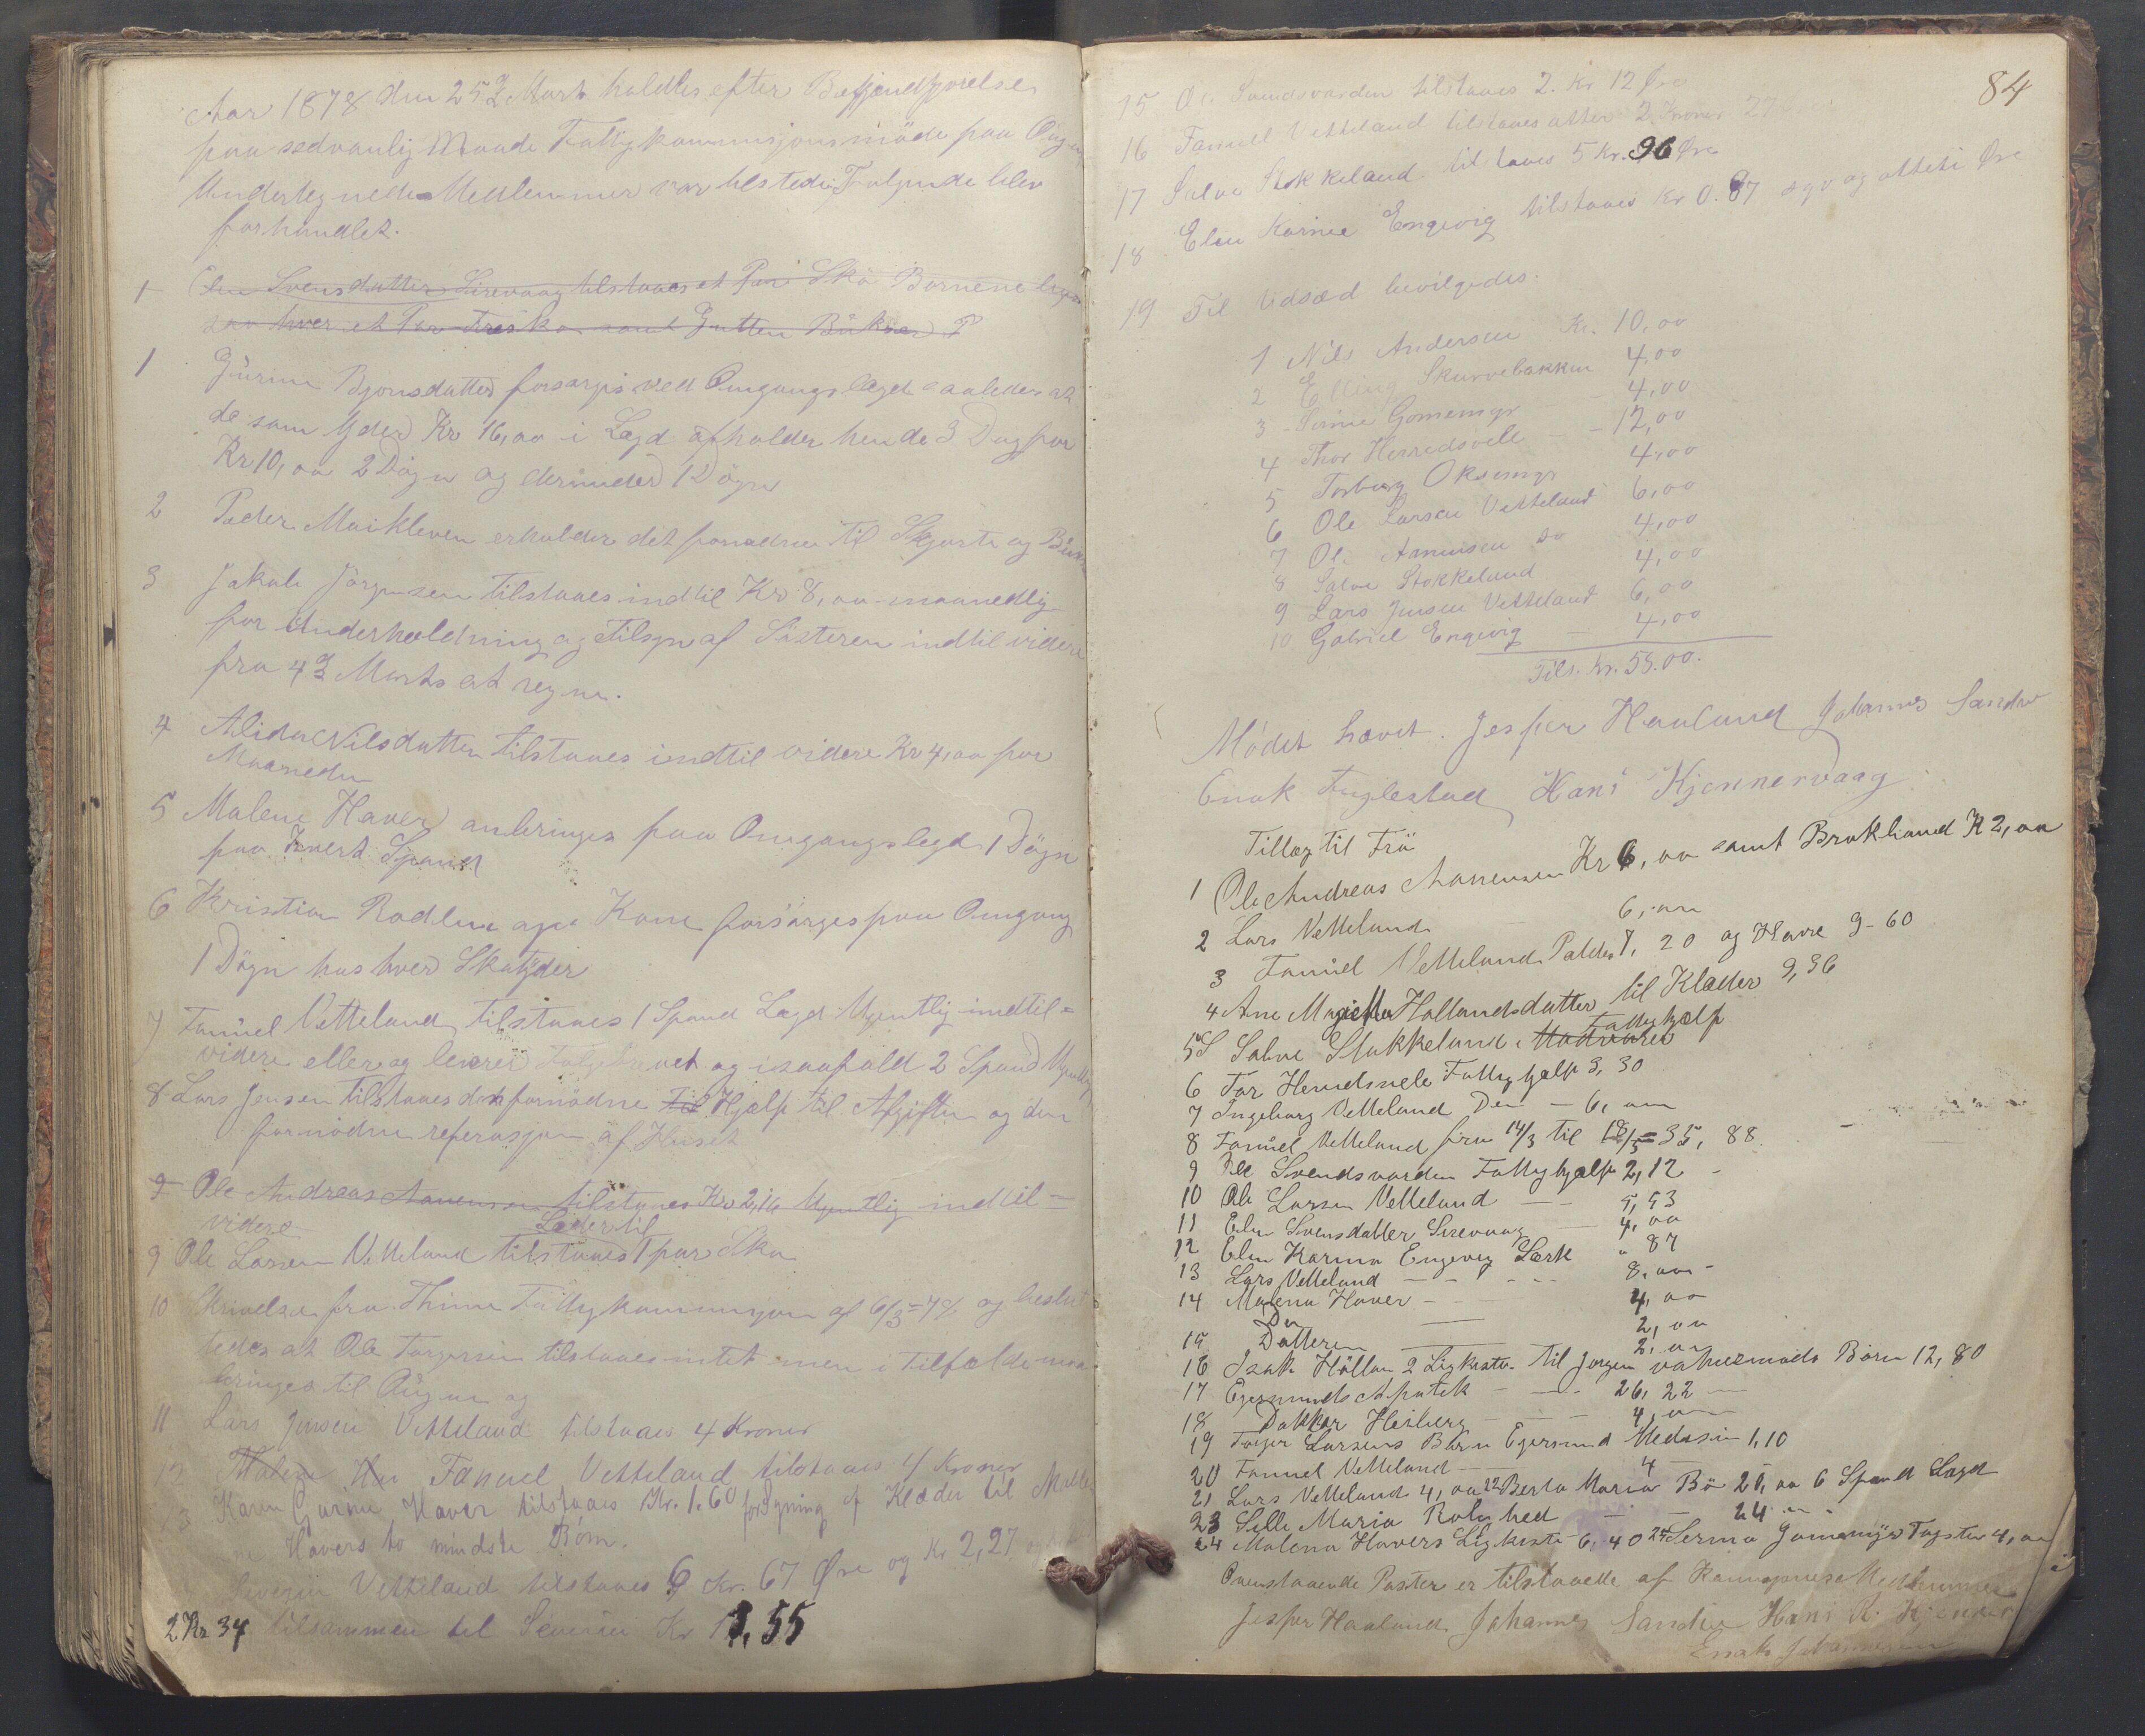 Aar 1878 den 25de Marts holdtes efter Bekjendtgjørelse
paa sedvanlig Maade Fattigkommisjonsmöde paa Ougne
Undertegnede Medlemmer var tilstede, Fölgende blev
forhandlet.
1 Elen Svensdatter Sirevaag tilstaaes et Par Sko Börnene lige
saa hver et Par Tresko samt Gutten Bükser
1 Gürine Bjornsdatter forsørges ved Omgangslægd saaledes at
de som Yder Kr 16,oo i Lægd afholder hende 3 Dag for
Kr 10,oo 2 Dögn og deründer 1 Dögn
2 Peder Maikleven erholder det fornødne til Skjorte og Bükse
3 Jakob Jörgensen tilstaaes indtil Kr 8,oo maanedlig
for Underholdning og Tilsyn af Sösteren indtil videre
fra 4de Marts at regne.
4 Alida Nilsdatter tilstaaes indtil videre Kr 4,oo for
Maaneden
5 Malene Haver anbringes paa Omgangslegd 1 Dögn
paa hvert Spand
6 Kristian Rodlien og Kone forsörges paa Omgang
1 Dögn hos hver Skatyder
7 Fanüel Vetteland tilstaaes 1 Spand Lægd Ugentlig indtil=
videre eller og leverer og isaafald 2 Spand Ugentlig
8 Lars Jensen tilstaaes det fornødne Til Hjælp til Afgiften og den
fornødne referasjon af Huset
9 Ole Andreas Aanensen tilstaaes Kr 2,16 Ugentlig indtil=
videre
Læder til
9 Ole Larsen Vetteland tilstaaes 1 par Sko
10 Skrivelse fra Thime Fattigkommisjon af 6/3=78 og beslut
tedes at Ole Torgersen tilstaaes intet men i Tilfælde maa
bringes til Ougne og
11 Lars Jensen Vetteland tilstaaes 4 Kroner
12 Malene Hav Fanuel Vetteland tilstaaes 4 Kroner
13 Karen Gurine Haver tilstaaes Kr. 1.60 for Syning af Klæder til Malle
ne Havers to mindste Börn.
Severin Vetteland tilstaaes 6 Kr. 67 Øre og Kr 2,27
2 Kr 34 tilsammen til Severin Kr 11,55
84
15 Ole Svendsvarden tilstaaes 2. Kr 12 Øre
16 Fanuel Vetteland tilstaaes atter 2 Kroner 27
17 Salve Stokkeland tilstaaes 5 Kr. 96 Øre
18 Elen Karine Engevig tilstaaes Kr 0.87 syv og otteti Øre
19 Til Udsæd bevilgedes.
1 Nils Andersen Kr. 10,00
2 Elling Skarvebakken 4,00
3 Serine Gomemyr 4,00
4 Thor Herredsvele 12,00
5 Torborg Oksemyr 4,00
6 Ole Larsen Vetteland 6,00
7 Ole Aanensen Do 4,00
8 Salve Stokkeland 4,00
9 Lars Jensen Vetteland 6,00
10 Gabriel Engevig 4,00
Tils. Kr. 58.00.
Mödet hævet. Jesper Haaland Johannes Sandve
Enok Fuglestad Hans Kjennervaag
Tillæg til Frö
1 Ole Andreas Aanensen Kr 6,oo samt Brokbaand K 2,oo
2 Lars Vetteland 6,oo
3 Fanüel Vetteland Poteter 7,20 og Havre 9-60
4 Ane Margretha Hollandsdatter til Klæder 9,36
5 Salve Stokkeland Madvarer Fattighjælp
6 Tor Herredsvele Fattighjælp 3,30
7 Ingeborg Vetteland Do - 6,oo
8 Fanüel Vetteland fra 14/3 til 18/5=35,88
9 Ole Svendsvarden Fattighjælp 2,12
10 Ole Larsen Vetteland 5,53
11 Elen Svensdatter Sirevaag 4,oo
12 Elen Karina Engevig Særk " 87
13 Lars Vetteland 8,oo
14 Malena Haver 4,oo
Do 2,oo
15 Datteren 2,oo
16 Isak Høllen 2 Ligkister til Jörgen Börn 12,80
17 Egersunds Apotek 26,22
18 Doktor Heiberg 4,oo
19 Torger Larsens Börn Egersund Medisin 1,10
20 Fanuel Vetteland 4
21 Lars Vetteland 4,oo 22 Berta Maria Bö 20,oo 6 Spand Lægd
23 Sille Maria Rolighed 24
24 Malena Havers Ligkiste 6,40 25 Serina Gomemyr Tagsten 4,oo
Ovenstaaende Poster er tilstaaede af Kommisjonens Medlemmer
Jesper Haaland Johannes Sandve Hans K. Kjenner
Enok Johannesen